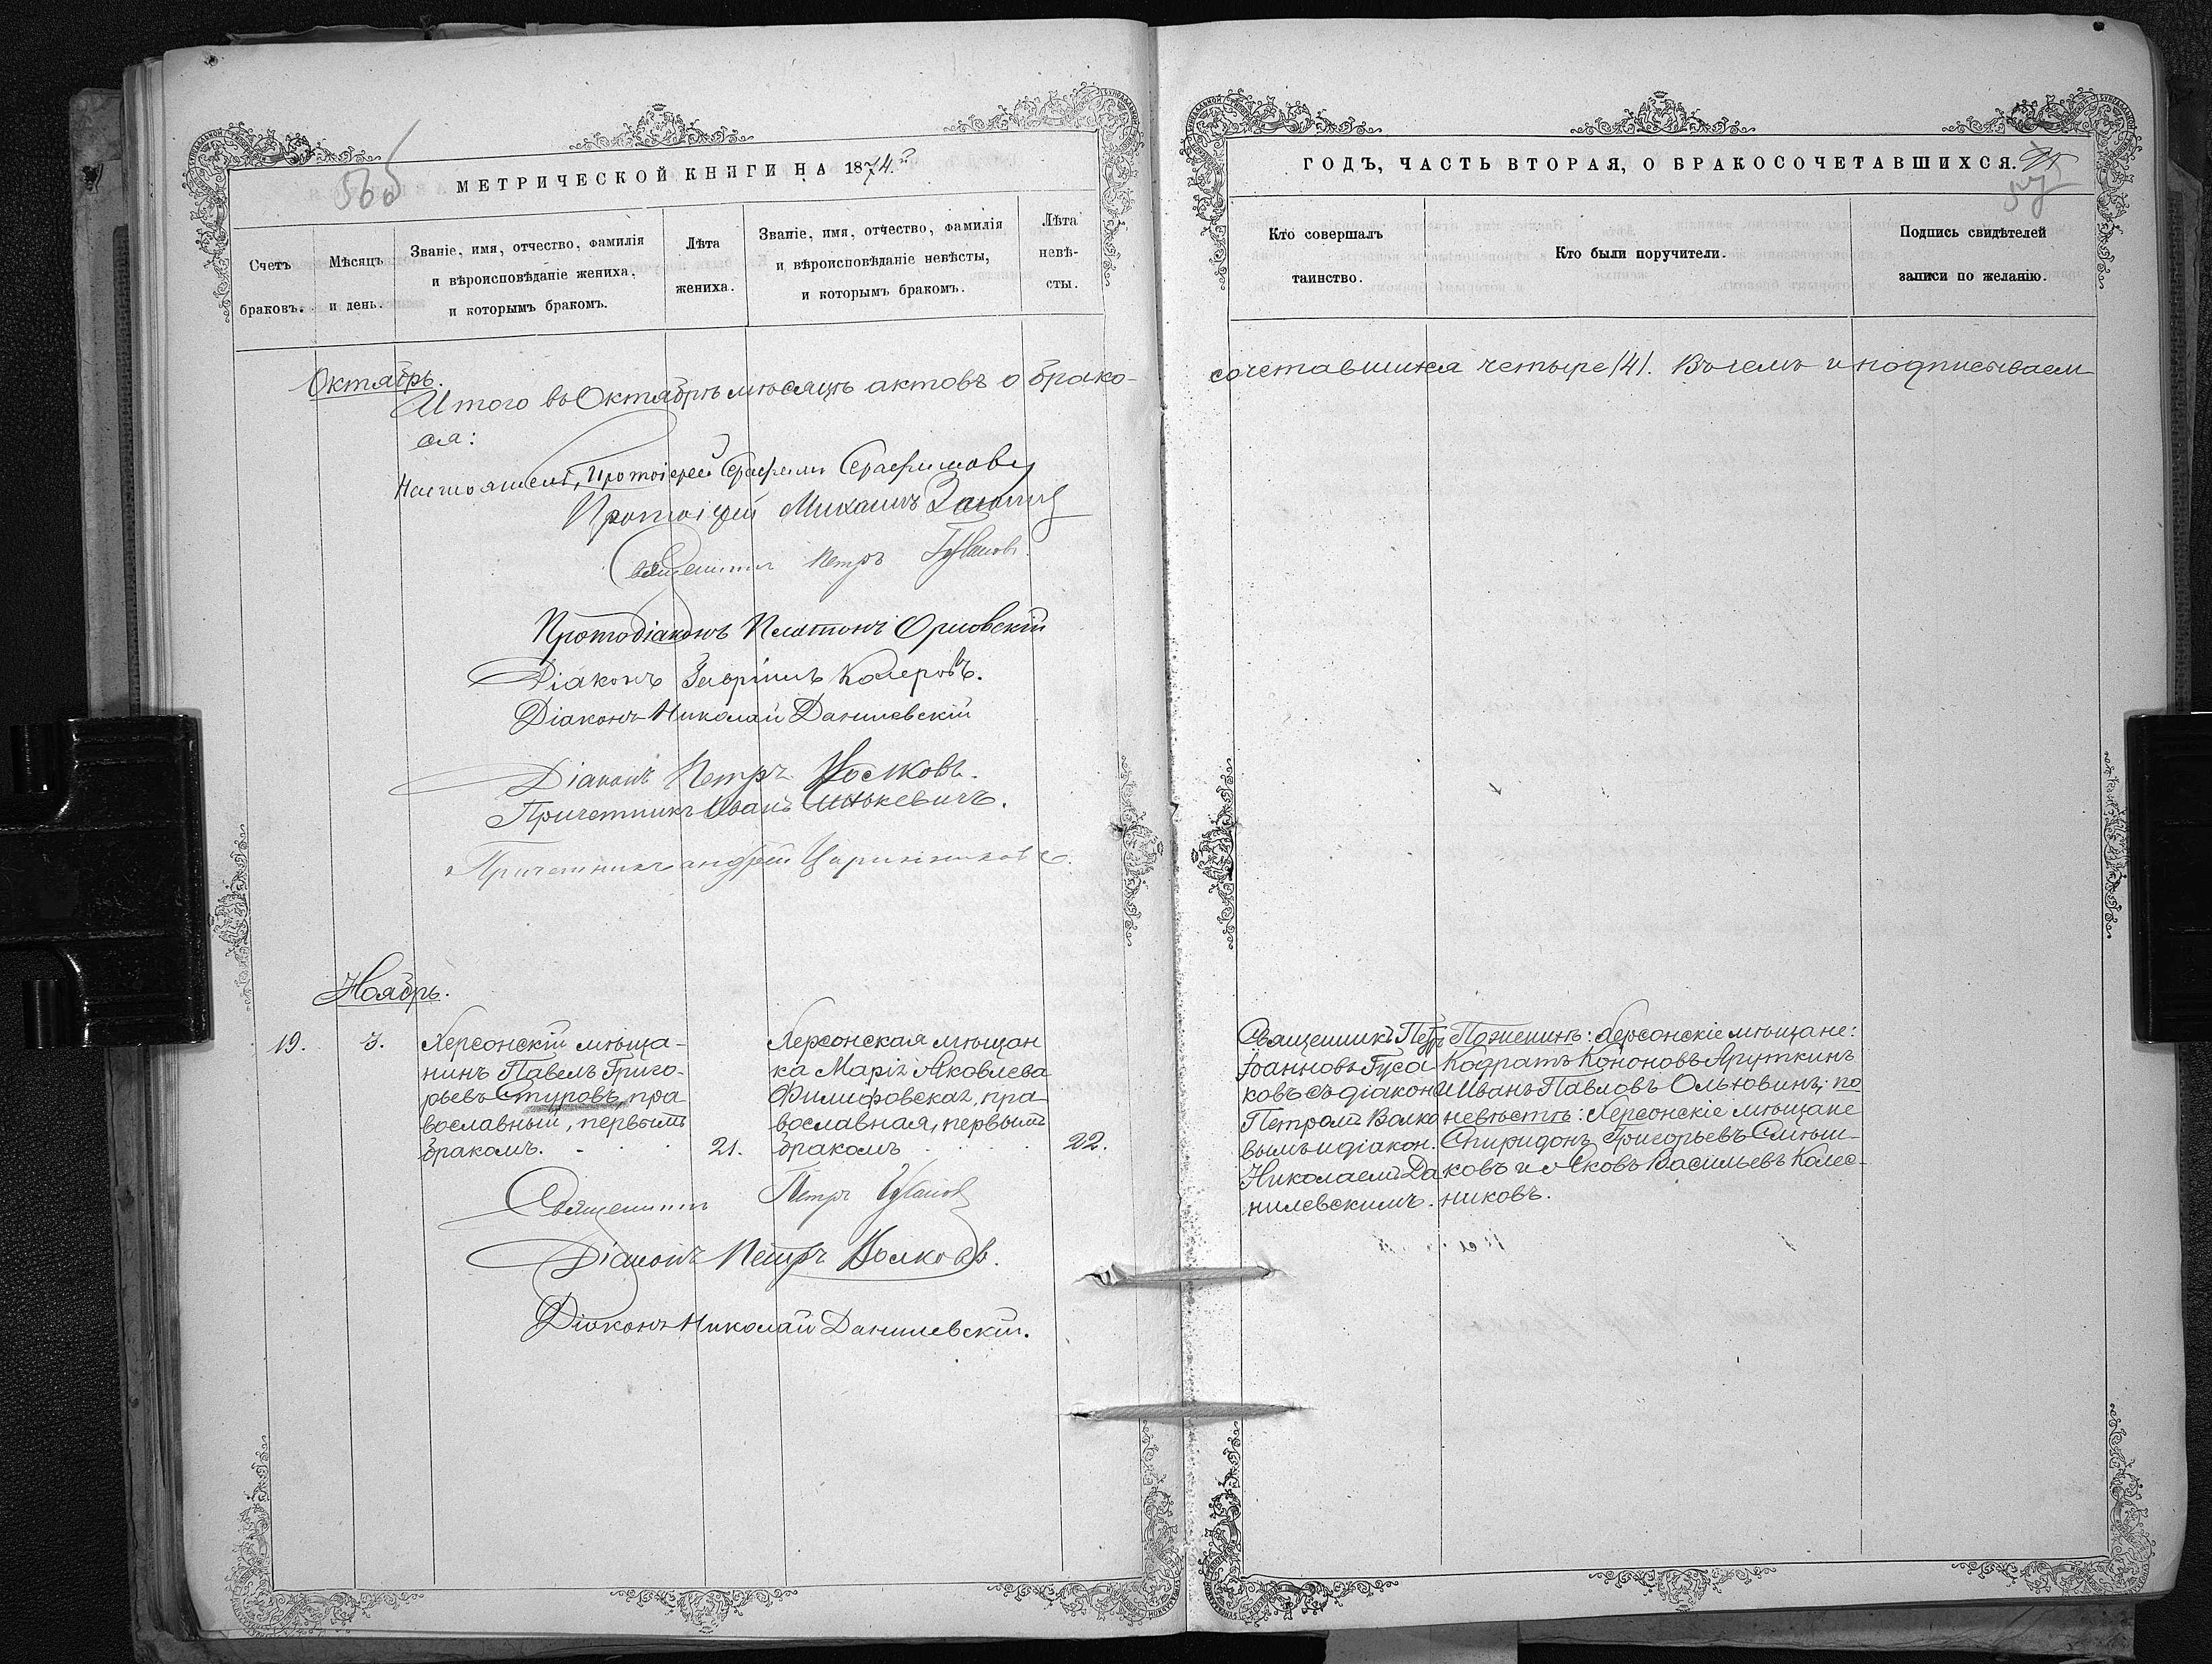 566
МЕТРИЧЕСКОЙ КНИГИ НА 1874.й
Счетъ
браковъ.
Мѣсяцъ
и день.
Званіе, имя, отчество, фамилія
и вѣроисповѣданіе жениха,
и которымъ бракомъ.
Лѣта
жениха.
Званіе, имя, отчество, фамилія
и вѣроисповѣданіе невѣсты,
и которымъ бракомъ.
Лѣта
невѣ-
сты.
Октябрь.
Итого въ Октябрѣ мѣсяцѣ актовъ о брако-
ся:
Настоятель, Протоіерей Серафимъ Серафимовъ
Протоіерей Михаилъ
Священникъ Петръ Гусаковъ.
Протодіаконъ Платонъ Орловскій
Діаконъ Гавріилъ Колеровъ.
Діаконъ Николай Данилевскій
Діаконъ Петръ Волковъ.
Причетникъ Иванъ Синькевичъ.
Причетникъ Андрей
Ноябрь.
19.
3.
Херсонскій мѣща-
нинъ Павелъ Григо-
рьевъ Стуровъ, пра-
вославный, первымъ
бракомъ.
21.
Херсонская мѣщан
ка Марія Яковлева
Филиповская, пра-
вославная, первымъ
бракомъ
22.
Священникъ Петръ Гусаковъ
Діаконъ Петръ Волковъ.
Діаконъ Николай Данилевскій.
ГОДЪ, ЧАСТЬ ВТОРАЯ, О БРАКОСОЧЕТАВШИХСЯ.
57
Кто совершалъ
таинство.
Кто были поручители.
Подпись свидѣтелей
записи по желанію.
сочетавшихся четыре /4/. Въ чемъ и подписываем
Священникъ Петръ
Іоанновъ Гуса
ковъ съ діакон.
Петромъ Волко
вымъ и діакон.
Николаемъ Да
нилевскимъ.
По женихѣ: Херсонскіе мѣщане:
Кодратъ Кононовъ Яруткинъ
и Иванъ Павловъ Ольховинъ; по
невѣстѣ: Херсонскіе мѣщане
Спиридонъ Григорьевъ Смѣш-
ковъ и Яковъ Васильевъ Колес-
никовъ.